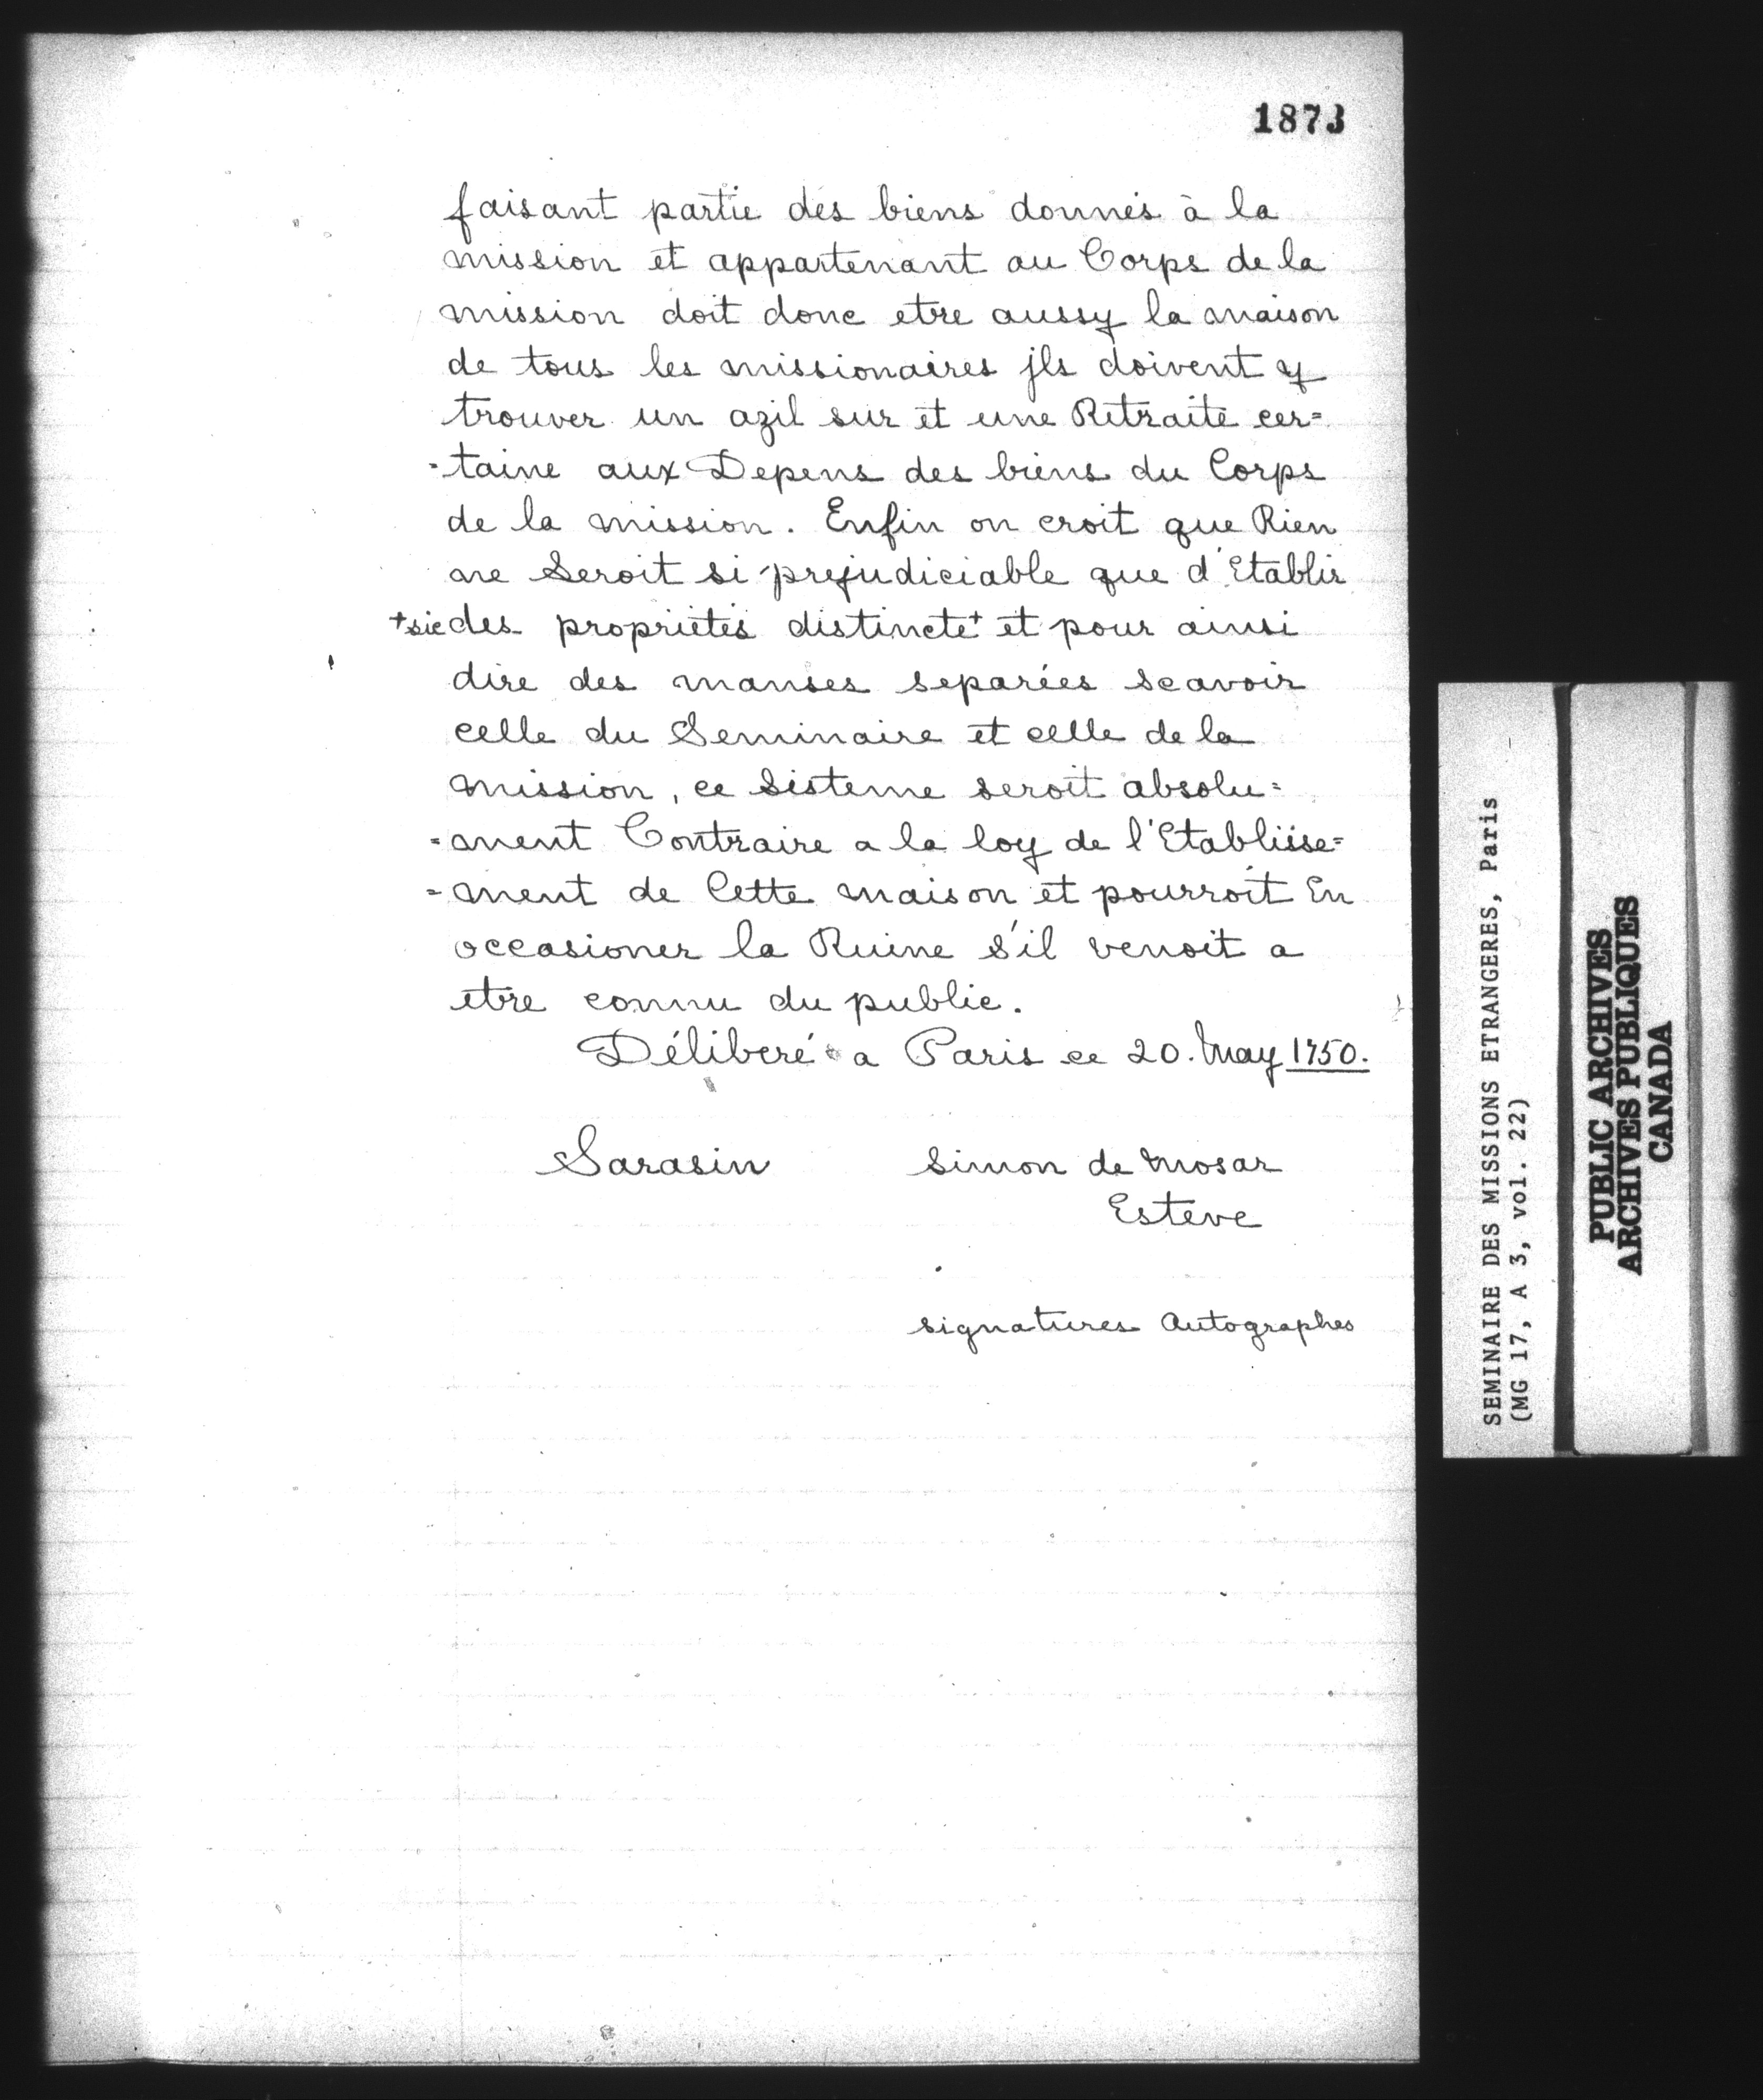 1873
faisant partie des biens donnés à la
mission et appartenant au Corps de la
mission doit donc etre aussy la maison
de tous les missionaires jls doivent y
trouver un azil sur et une Retraite cer=
=taine aux Depens des biens du Corps
de la mission. Enfin on croit que Rien
ne Seroit si prejudiciable que d'Etablir
+sic des propriétés distincte+ et pour ainsi
dire des manses separées scavoir
celle du Seminaire et celle de la
mission, ce Sisteme seroit absolu=
=ment Contraire a la loy de l'Etablisse=
=ment de Cette maison et pourroit En
occasioner la Ruine s'il venoit a
etre connu du public.
Délibéré a Paris ce 20. May 1750.
Sarasin Simon de Mosar
Esteve
signatures Autographes
SEMINAIRE DES MISSIONS ETRANGERES, Paris
(MG 17, A 3, vol. 22)
PUBLIC ARCHIVES
ARCHIVES PUBLIQUES
CANADA